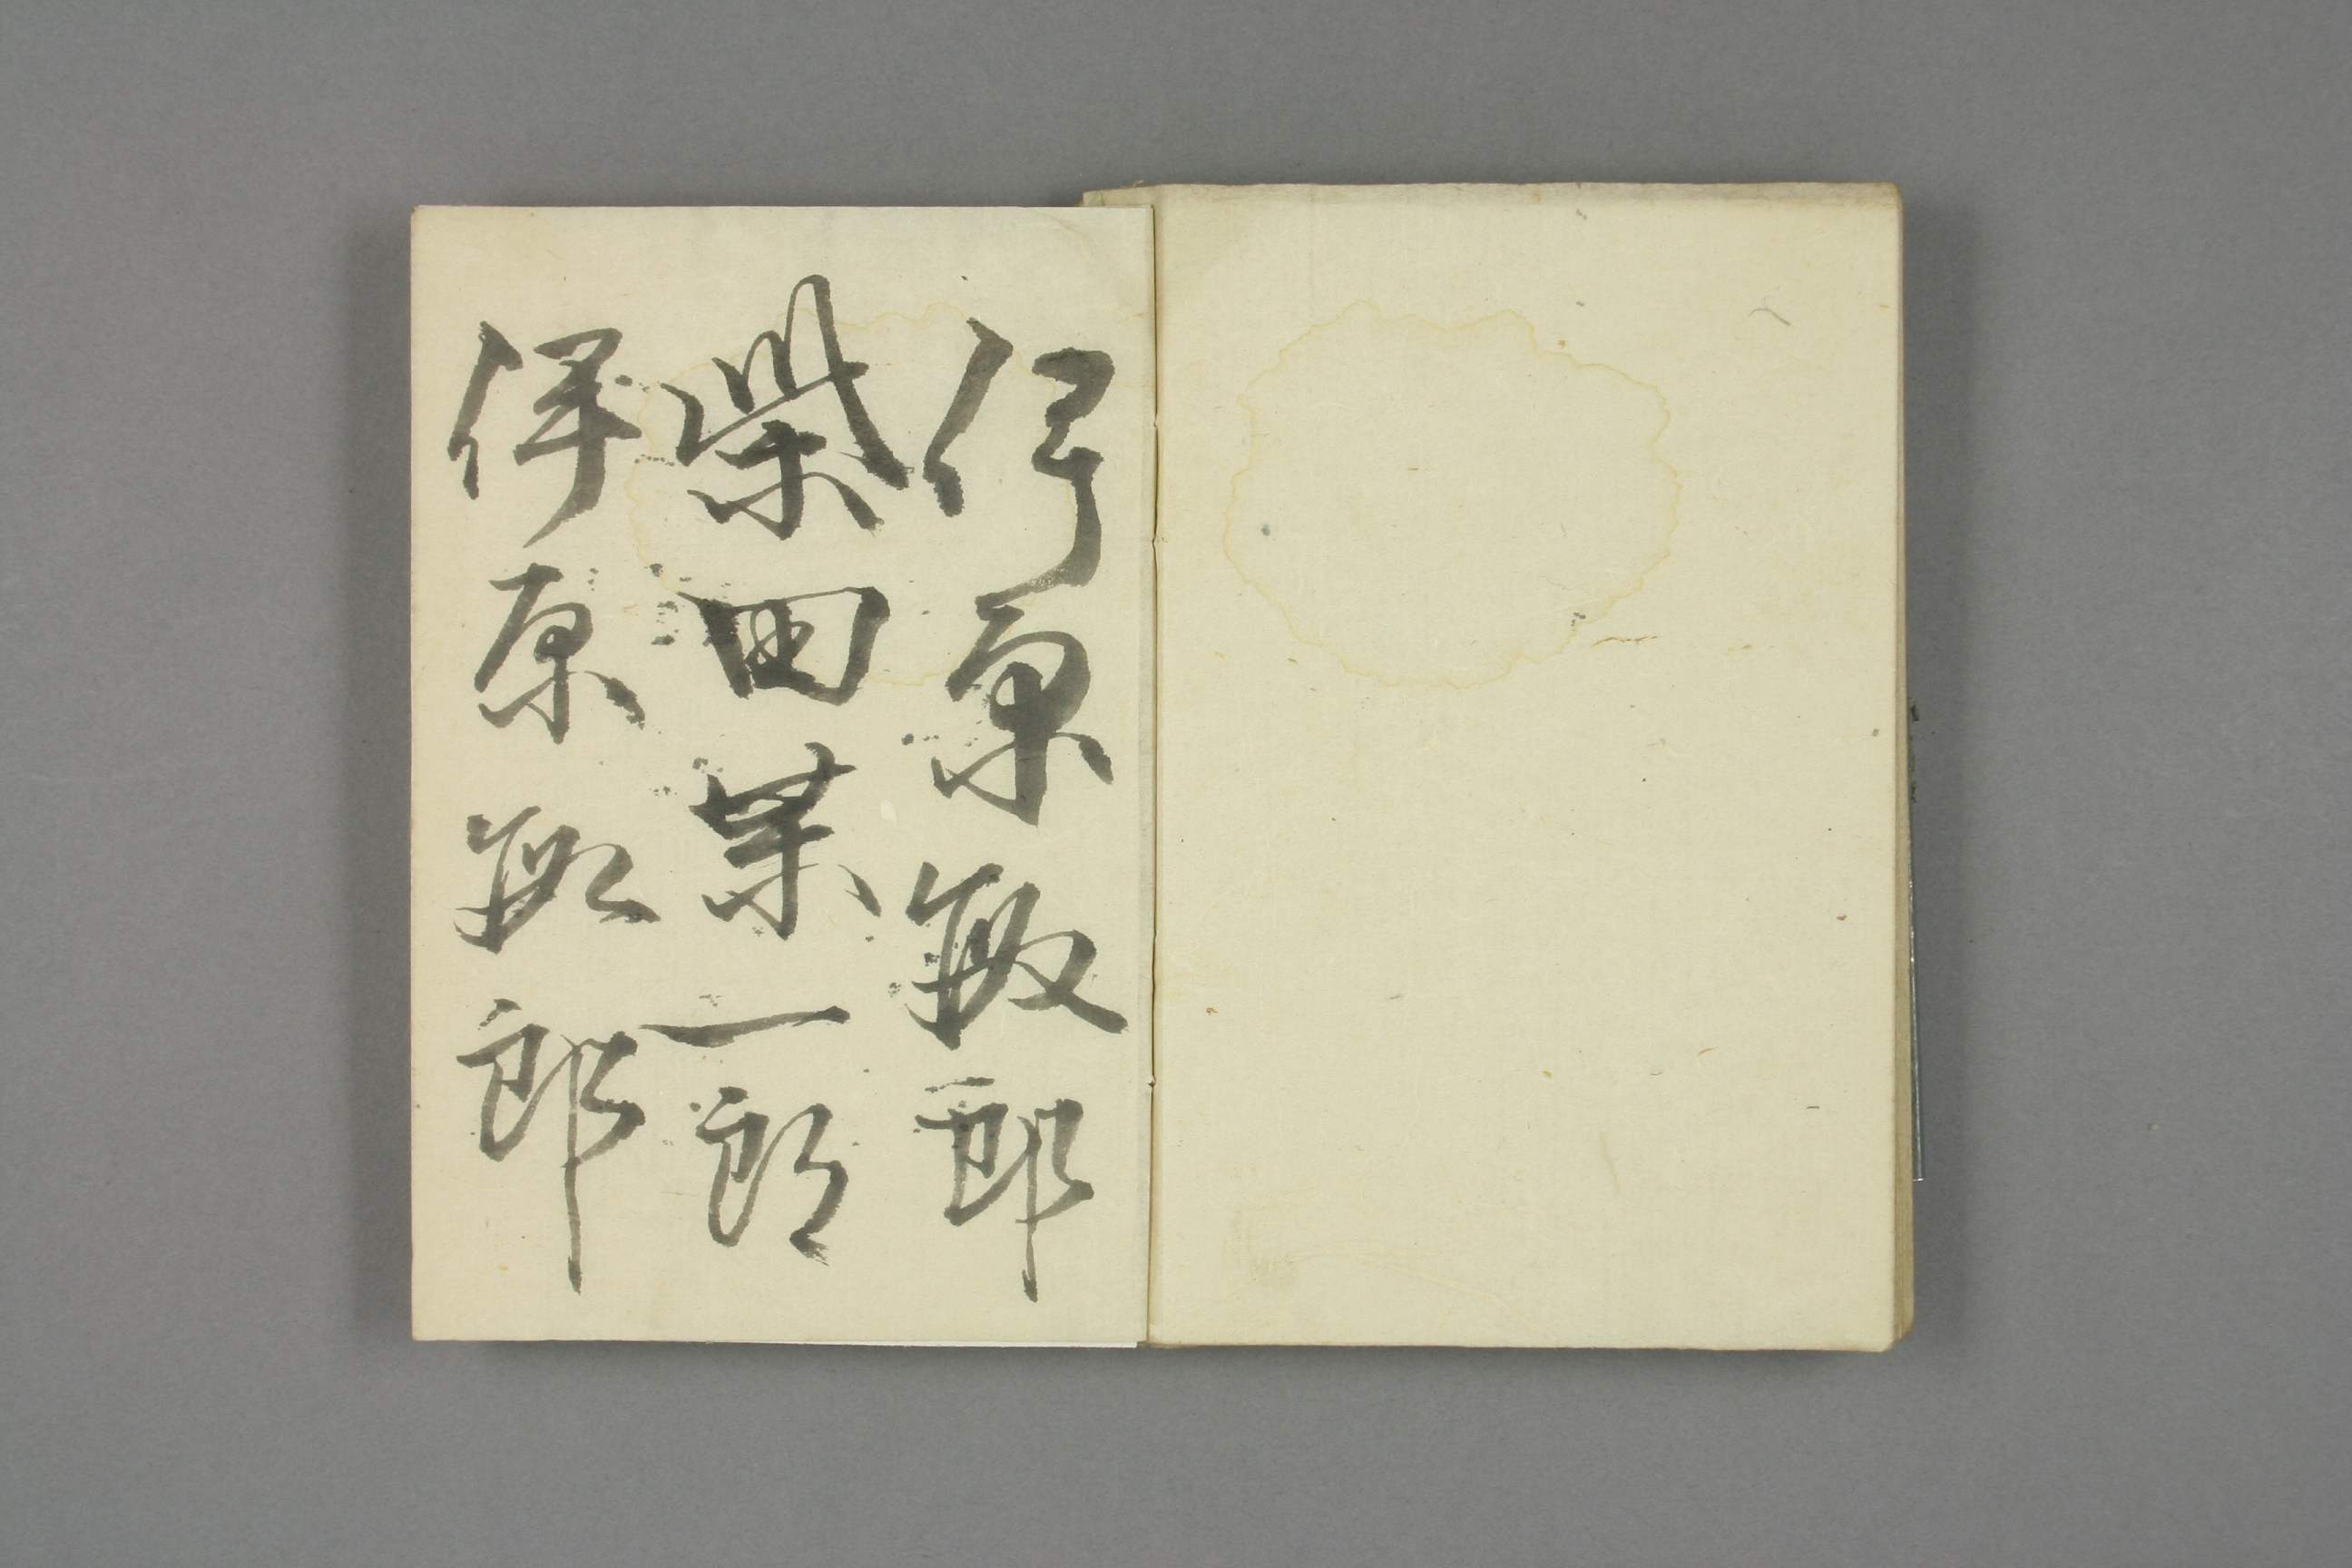 伊原敏郎
柴田業一郎
伊原敏郎